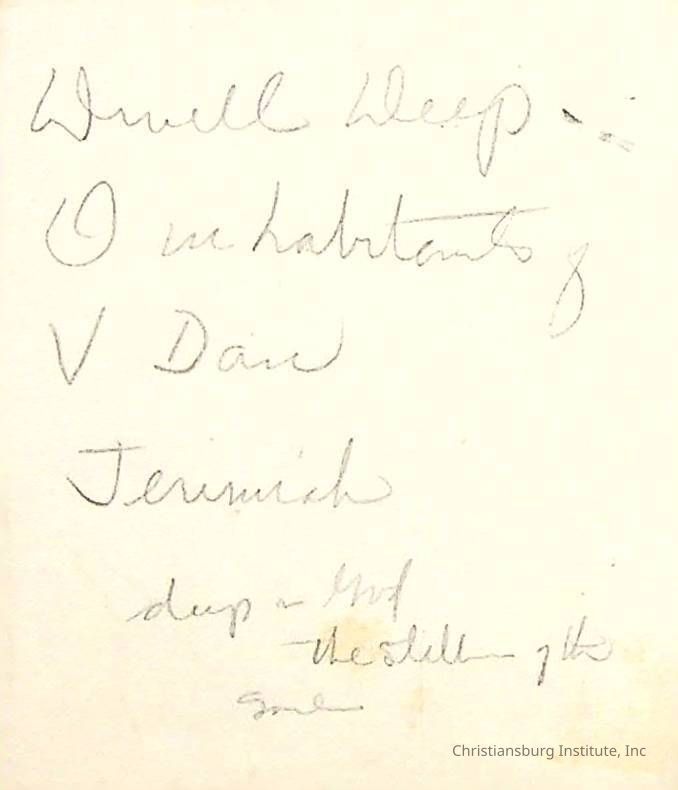 Dwell Deep -
O inhabitants of
V Dan
Jeremiah
deep in God
The stillness of the
Christiansburg Institute, Inc